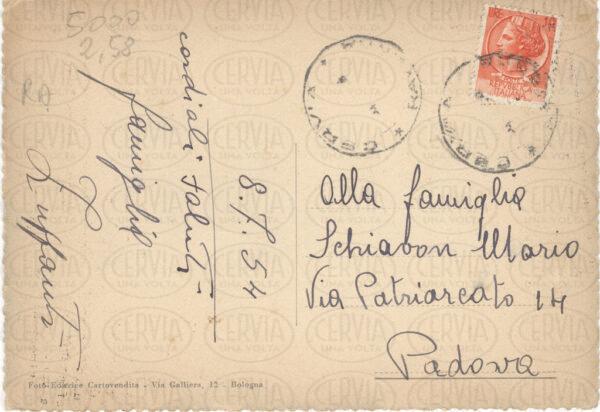 5000
2,58
RA
cordiali saluti
famiglia
Zuffanti
8.7.54
Alla famiglia
Schiavon Mario
Via Patriarcato 14
Padova
REPVBBLICA
ITALIANA
CERVIA
CERVIA
Foto-Edizrice Cartovendita - Via Galliera, 12 - Bologna
CERVIA
UNA VOLTA